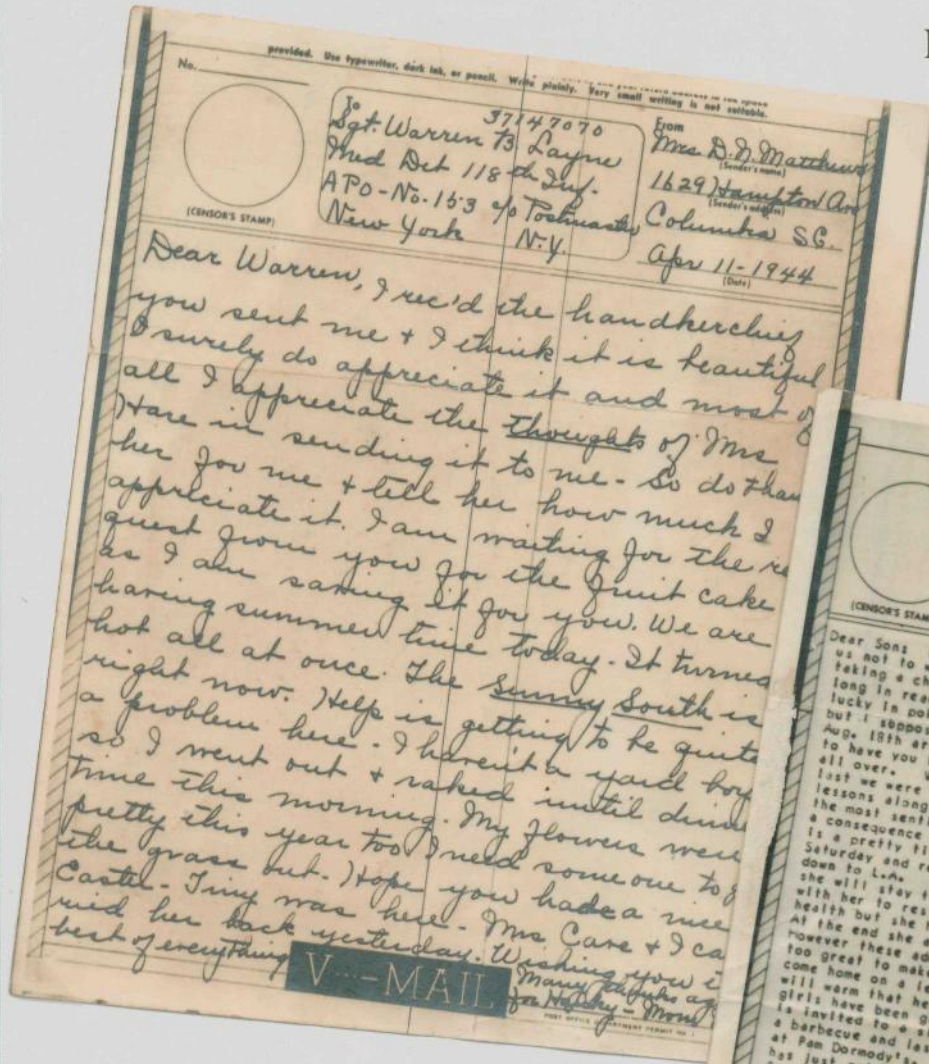 provided. Use typewriter, dark ink, or pencil. Write plainly. Very small writing is not suitable.
No.
(CENSOR'S STAMP)
To 37147070
Sgt. Warren B. Layne
Med Det 118th Inf.
APO-No. 153 c/o Postmaster
New York N.Y.
From
Mrs D.N. Matthews
(Sender's name)
1629 Hampton Ave
(Sender's address)
Columbia S.C.
Apr 11-1944
(Date)
Dear Warren, I rec'd the handkerchief
you sent me + I think it is beautiful
I surely do appreciate it and most of
all I appreciate the thoughts of Mrs
Hare in sending it to me - So do than
her for me + tell her how much I
appreciate it. I am waiting for the re
quest from you for the fruit cake
as I am saving it for you. We are
having summer time today - It turned
hot all at once. The Sunny South is
right now. Help is getting to be quite
a problem here - I haven't a yard boy
so I went out + raked until dinne
time this morning. My flowers were
pretty this year too I need someone to g
the grass out. Hope you had a nice
Easter - Tiny was here - Mrs Care + I ca
ried her back yesterday. Wishing you
best of everything
Many thanks ag
for Hanky - Mom
V···-MAIL
POST OFFICE DEPARTMENT PERMIT NO.
(CENSOR'S STAM
Dear Sons
us not to w
taking a ch
long in rea
lucky in pol
but I suppos
Aug. 18th ar
to have you
all over.
last we were
lessons along
the most senti
a consequence
is a pretty fi
Saturday and re
down to L.A.
she will stay t
with her to res
health but she h
At the end she a
However these ad
too great to make
come home on a le
will warm that he
girls have been g
is invited to a s
a barbecue and las
at Pam Dormody's
has just